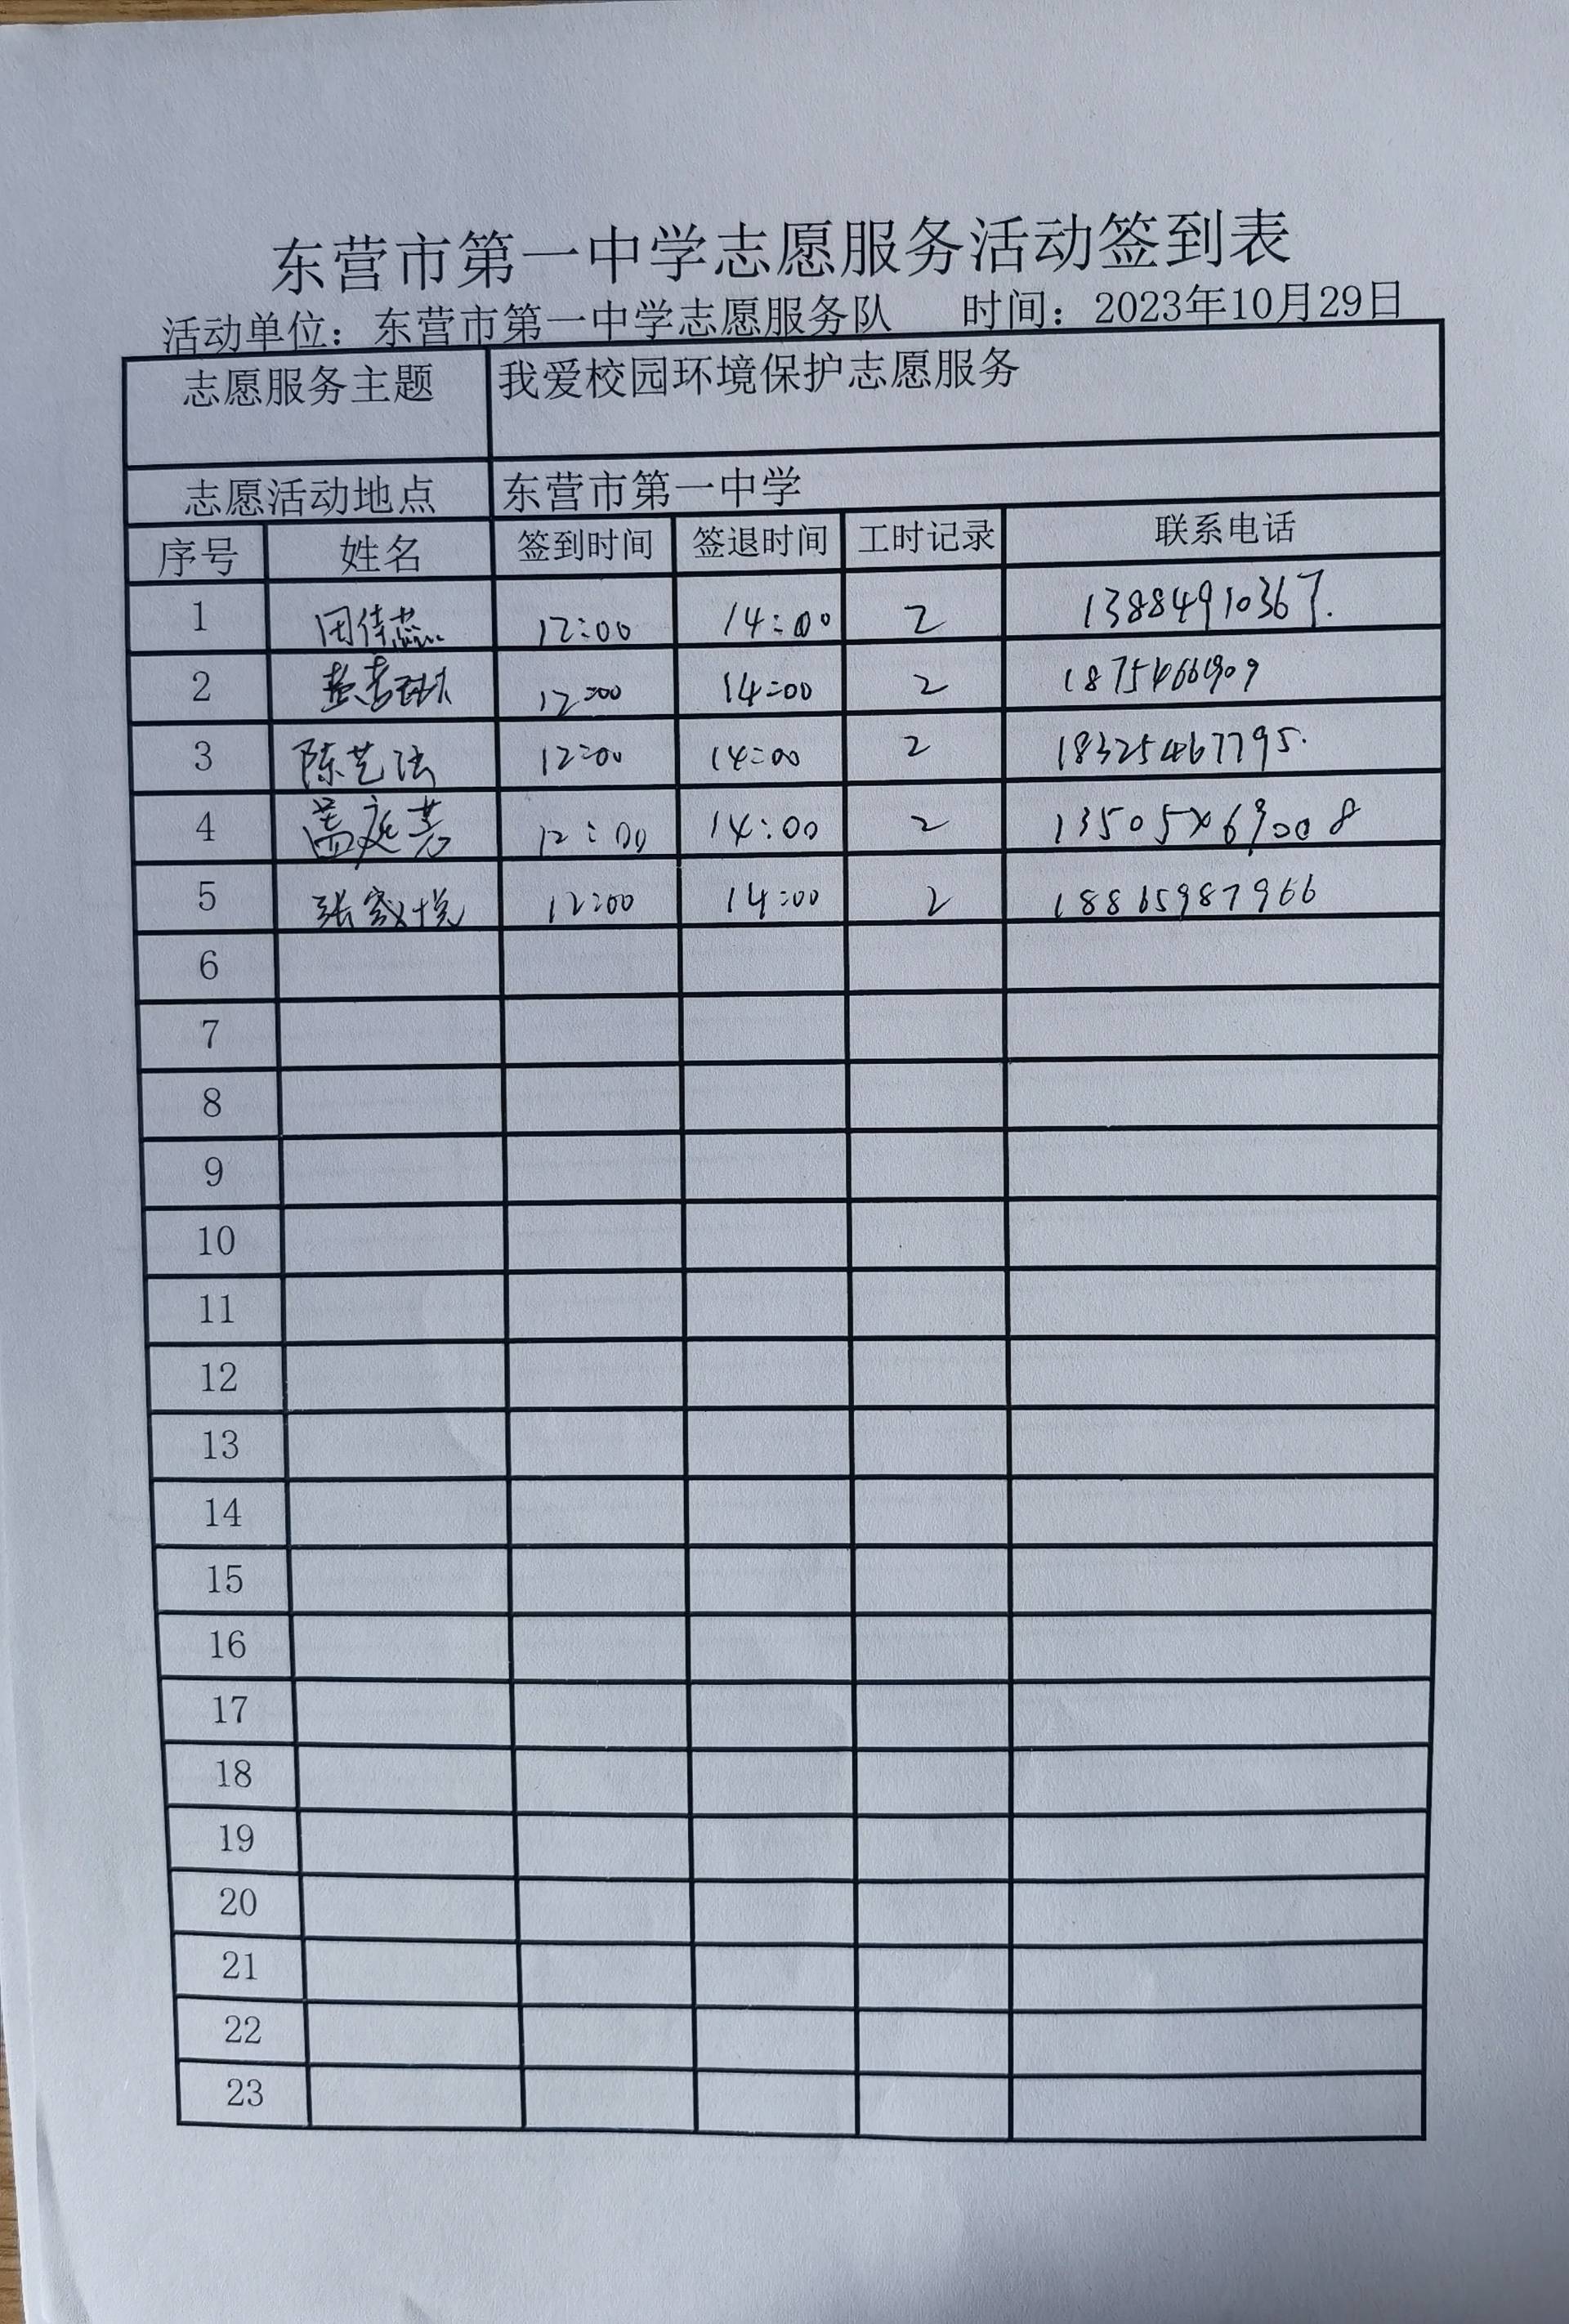 东营市第一中学志愿服务活动签到表
活动单位：东营市第一中学志愿服务队 时间：2023年10月29日
志愿服务主题 我爱校园环境保护志愿服务
志愿活动地点 东营市第一中学
序号 姓名 签到时间 签退时间 工时记录 联系电话
1 12:00 14:00 2 13884910367.
2 12:00 14:00 2
3 陈艺法 12:00 14:00 2 18325467795.
4 盖庭芳 12:00 14:00 2
5 张家悦 12:00 14:00 2 18865987966
6
7
8
9
10
11
12
13
14
15
16
17
18
19
20
21
22
23